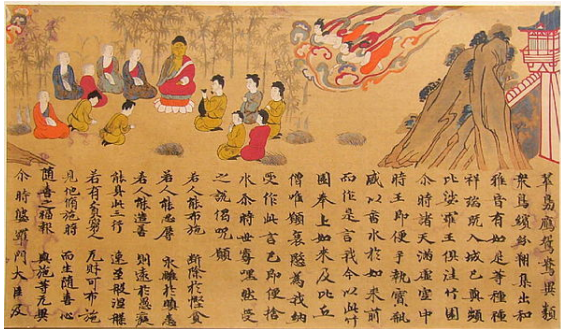 翠鳬鴈鴛鴦異類
衆鳥繽紛翔集出和
雅音有如是等種種
祥瑞既入城已與頻
比娑羅王俱往竹園
尒時諸天滿虚空中
時王即便手執寶瓶
盛以香水於如来前
而作是言我今以此竹
園奉上如来及比丘
僧唯願哀愍為我納
受作此言已即便捨
水尒時世尊嘿然受
之説偈呪願
若人能布施 断除於慳貪
若人能忍辱 永離於瞋恚
若人能造善 則遠於愚癡
能具此三行 速至般涅槃
若有貧窮人 无財可布施
見他脩施時 而生随喜心
随喜之福報 與施等无異
尒時婆羅門大臣及